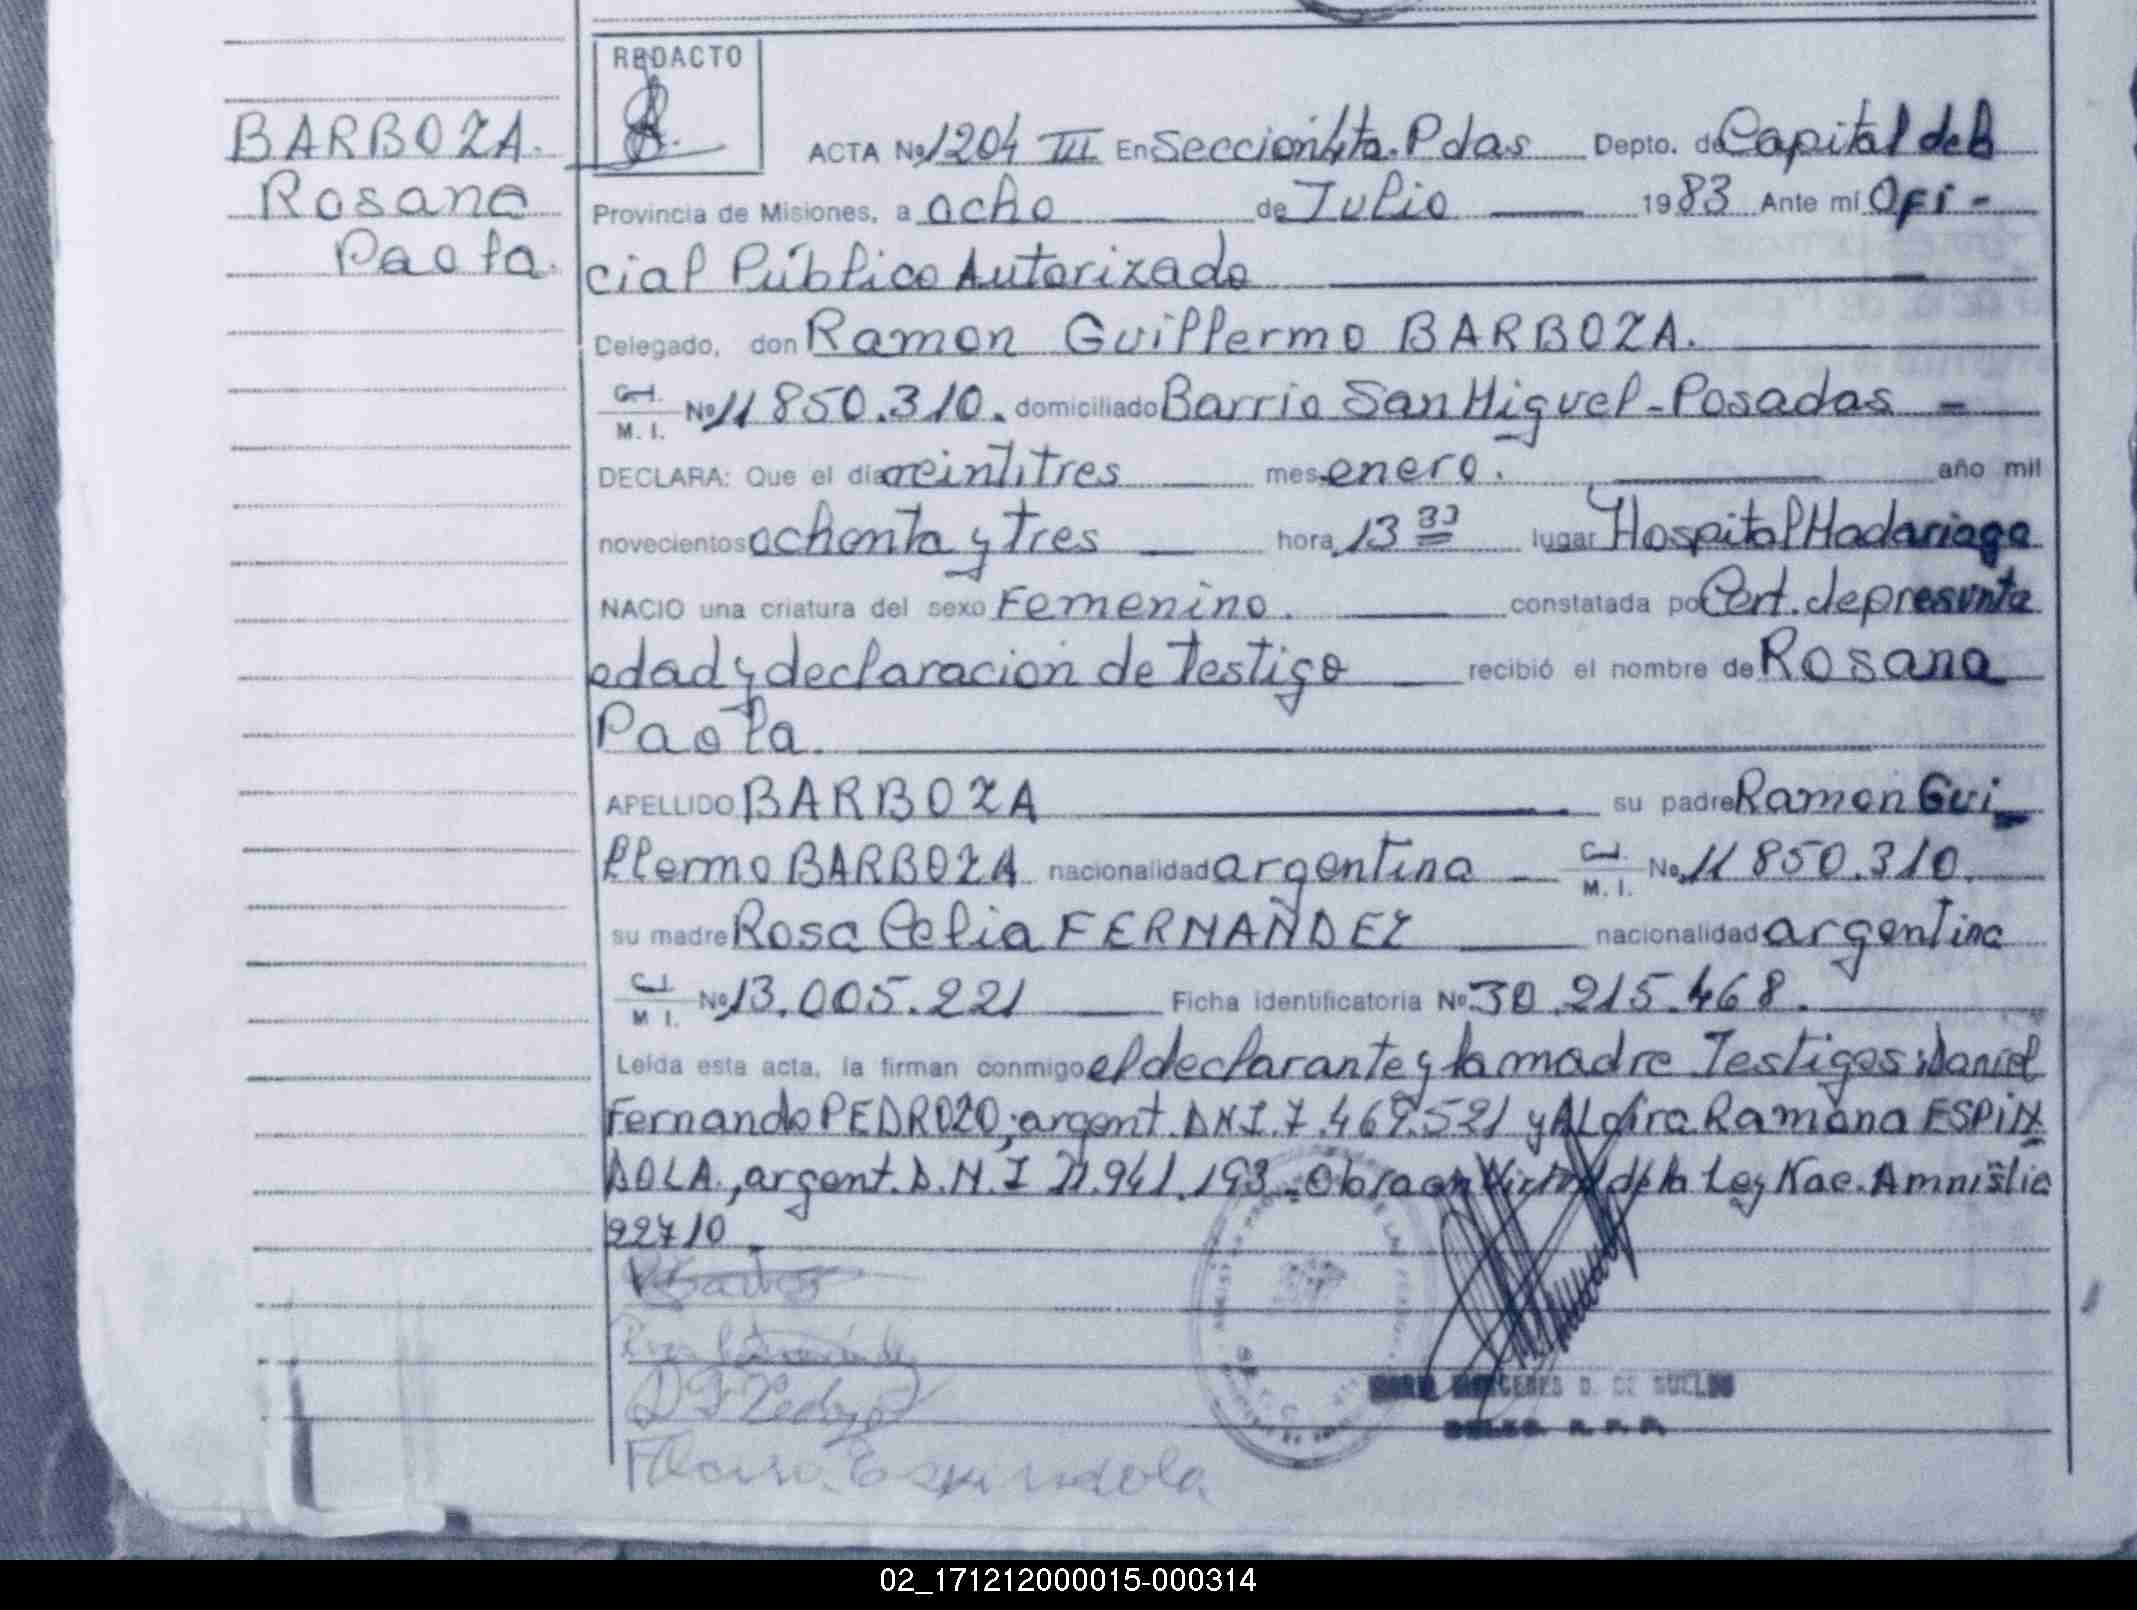 REDACTO
BARBOZA.
Rosana
Paola.
ACTA Nº 1204 III En Seccion 4ta. Pdas Depto. de Capital de la
Provincia de Misiones, a ocho de Julio 1983 Ante mí Ofi-
cial Público Autorizado
Delegado, don Ramon Guillermo BARBOZA.
C.I. M. I. Nº 11 850.310. domiciliado Barrio San Miguel - Posadas -
DECLARA: Que el día veintitres mes enero. año mil
novecientos ochenta y tres hora 13 30 lugar Hospital Madariaga
NACIO una criatura del sexo Femenino. constatada por Cert. de presunta
edad y declaracion de Testigo recibió el nombre de Rosana
Paola.
APELLIDO BARBOZA su padre Ramon Gui
llermo BARBOZA nacionalidad argentina C.I. M. I. Nº 11 850.310.
su madre Rosa Celia FERNANDEZ nacionalidad argentina
C.I. M I. Nº 13.005.221 Ficha identificatoria Nº 30.215.468.
Leída esta acta, la firman conmigo el declarante y la madre Testigos: Daniel
Fernando PEDROZO, argent. D.N.I. 7.469.521 y Ramona ESPIN
DOLA, argent. D.N.I 21.941.193. Obra en Virtud de la Ley Nac. Amnistia
22710
D F Pedrozo
Espindola
D. DE
02_171212000015-000314